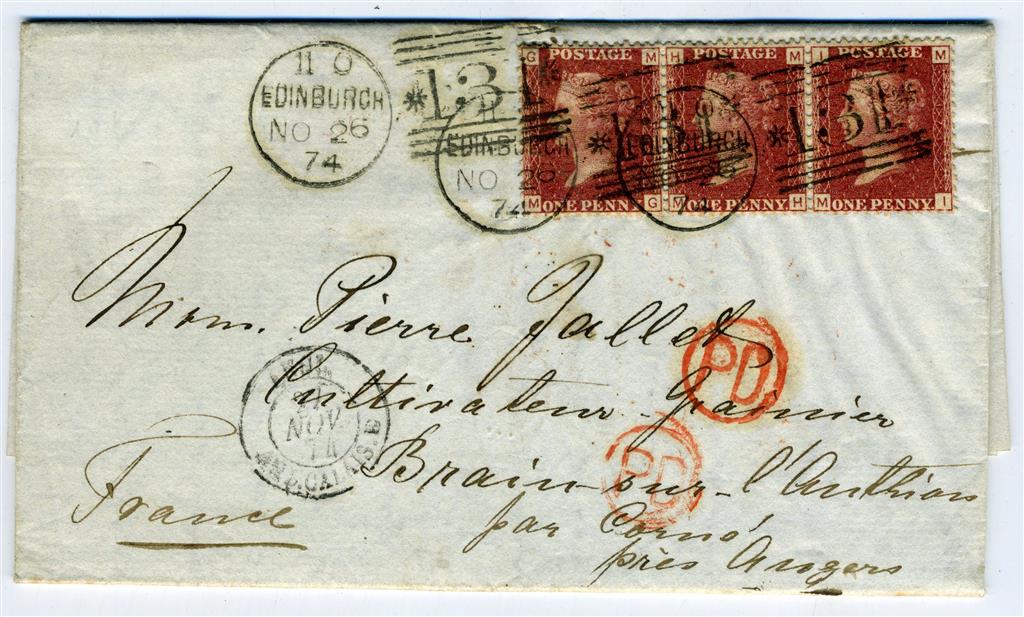 11 O
EDINBURGH
NO 26
74
131
EDINBURGH
NO 26
74
131
EDINBURGH
NO 26
74
131
G POSTAGE M
M ONE PENNY G
H POSTAGE M
M ONE PENNY H
I POSTAGE M
M ONE PENNY I
Mon. Pierre Jallet
Cultivateur-Grainier
Brain-sur-l'Authion
par Corné
près Angers
France
PD
PD
NOV.
74
CALAIS